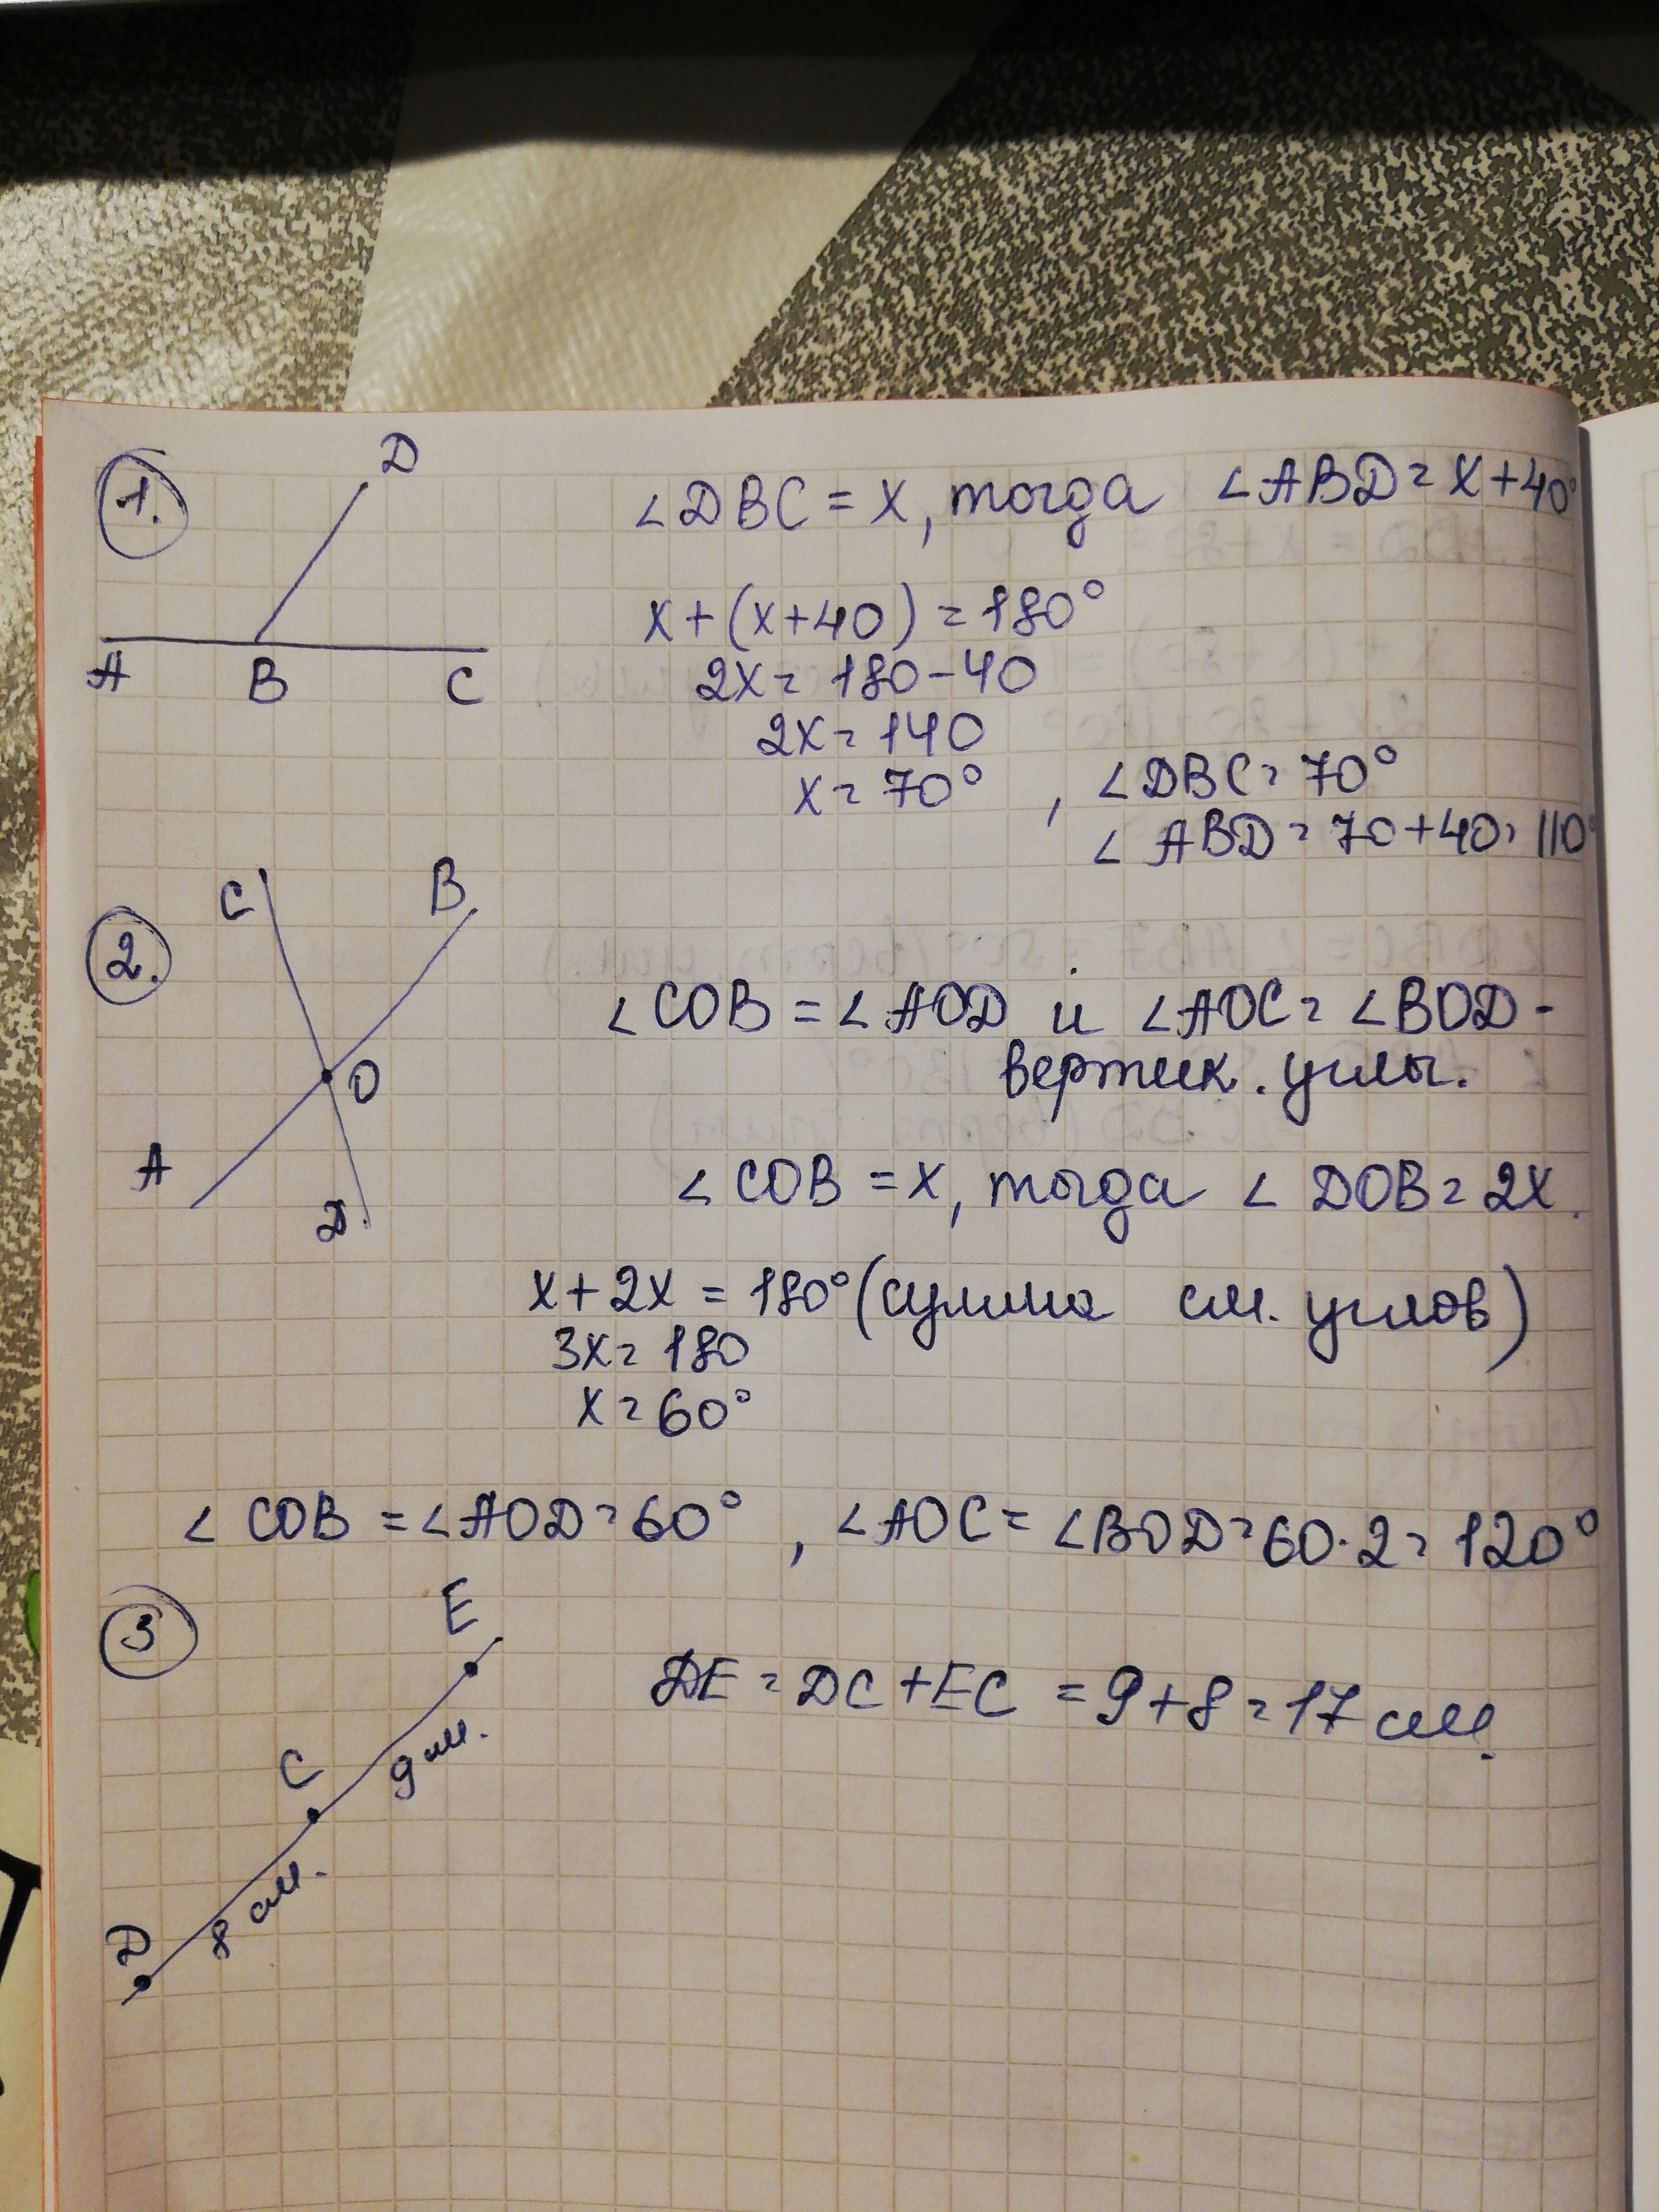 1.
D
A B C
∠DBC = x, тогда ∠ABD = x+40°
x+(x+40) = 180°
2x = 180-40
2x = 140
x = 70°, ∠DBC = 70°
∠ABD = 70+40 = 110°
2.
C B
O
A
D
∠COB = ∠AOD и ∠AOC = ∠BOD -
вертик. углы.
∠COB = x, тогда ∠DOB = 2x.
x+2x = 180° (сумма см. углов)
3x = 180
x = 60°
∠COB = ∠AOD = 60°, ∠AOC = ∠BOD = 60·2 = 120°
3
E
C
9 см.
8 см.
D
DE = DC+EC = 9+8 = 17 см.